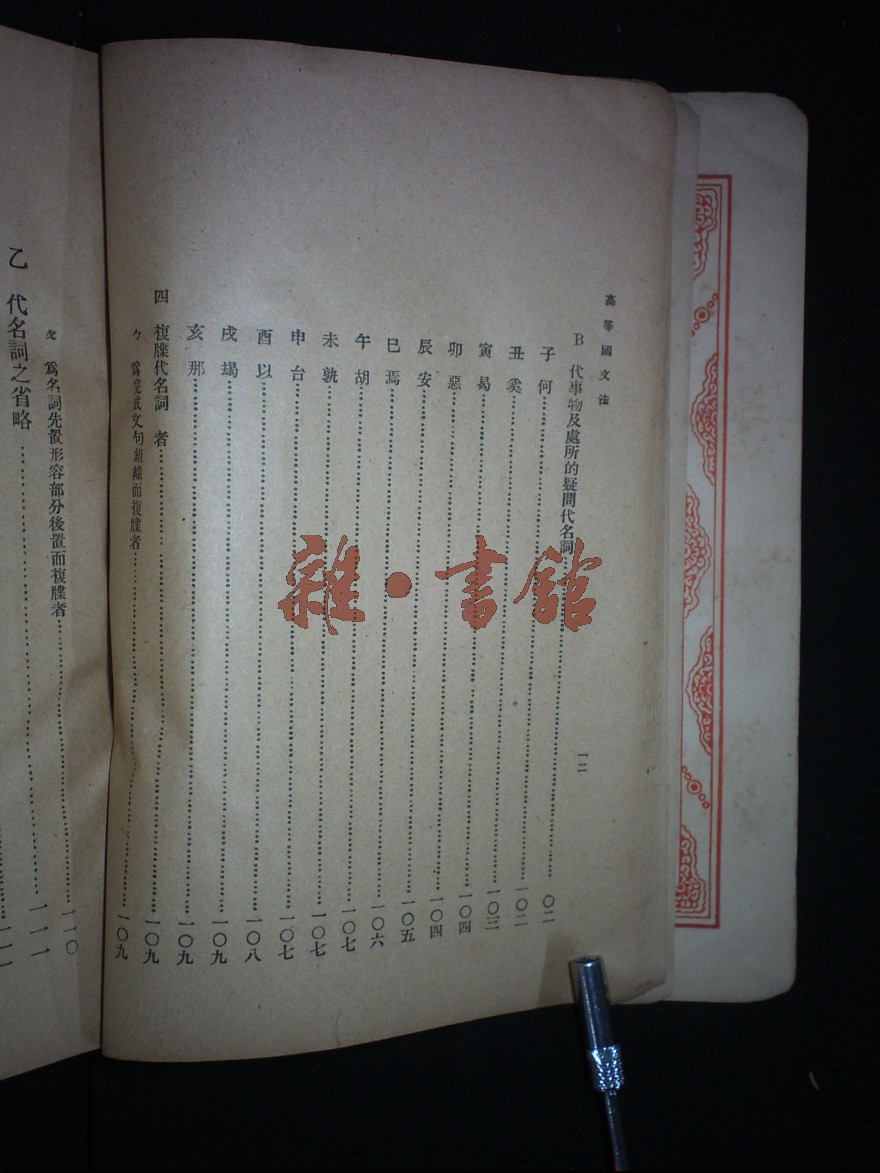 高等國文法
一二
B 代事物及處所的疑問代名詞
子 何 〇二
丑 奚 一〇二
寅 曷 一〇三
卯 惡 一〇四
辰 安 一〇四
巳 焉 一〇五
午 胡 一〇六
未 孰 一〇七
申 台 一〇七
酉 以 一〇七
戌 朅 一〇八
亥 那 一〇九
四 複牒代名詞 者 一〇九
ㄅ 爲變成文句組織而複牒者 一〇九
ㄆ 爲名詞先置形容部分後置而複牒者 一一〇
乙 代名詞之省略 一一一
雜·書館